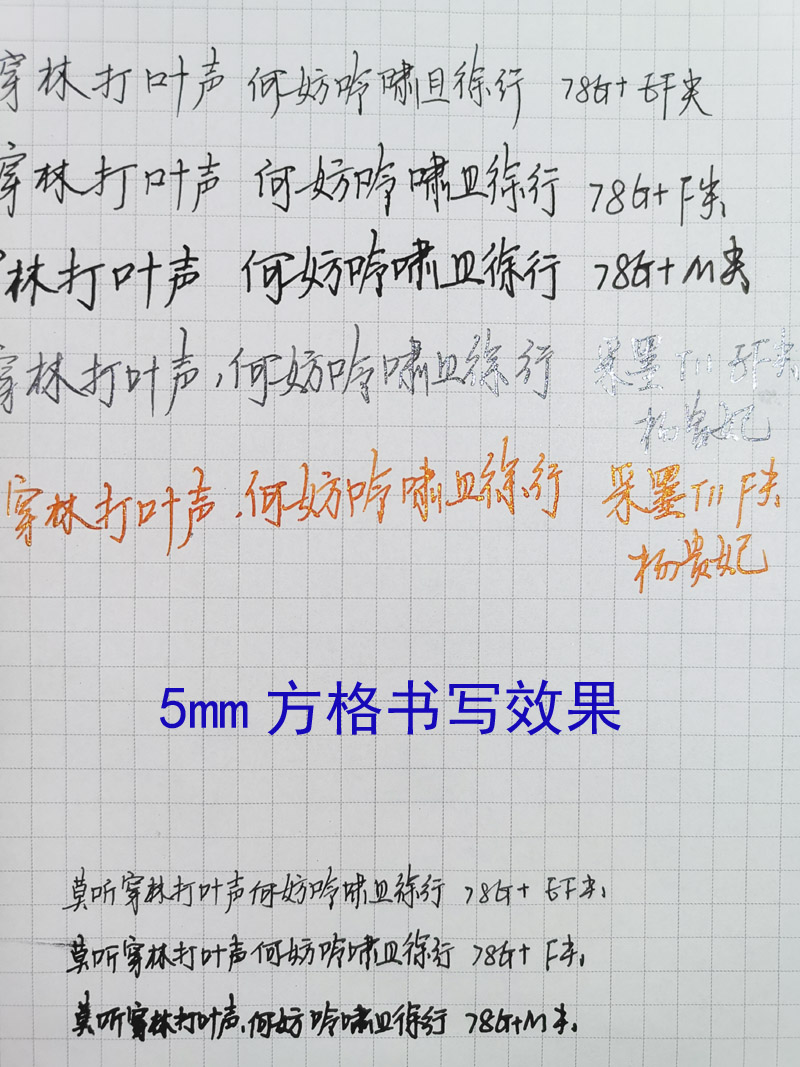 穿林打叶声 何妨吟啸且徐行 78G+ EF尖
穿林打叶声 何妨吟啸且徐行 78G+ F尖
林打叶声 何妨吟啸且徐行 78G+M尖
穿林打叶声,何妨吟啸且徐行 采墨T11 EF尖
杨贵妃
穿林打叶声,何妨吟啸且徐行 采墨T11 F尖
杨贵妃
5mm 方格书写效果
莫听穿林打叶声何妨吟啸且徐行 78G+ EF尖
莫听穿林打叶声何妨吟啸且徐行 78G+ F尖
莫听穿林打叶声,何妨吟啸且徐行 78G+M尖